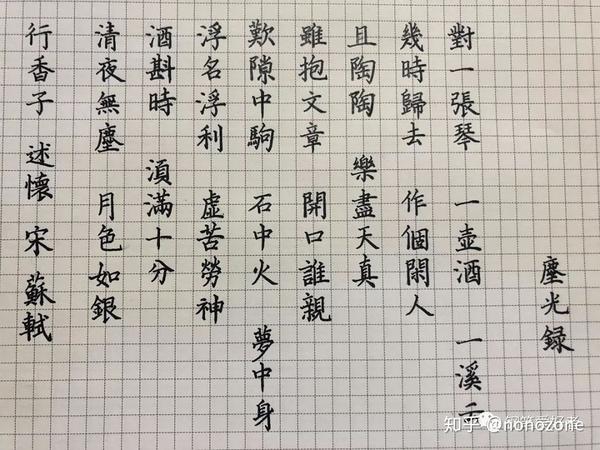 行香子 述懷 宋 蘇軾
清夜無塵 月色如銀
酒斟時 湏滿十分
浮名浮利 虛苦勞神
歎隙中駒 石中火 夢中身
雖抱文章 開口誰親
且陶陶 樂盡天真
幾時歸去 作個閑人
對一張琴 一壺酒 一溪
塵光録
知乎 @nonozone